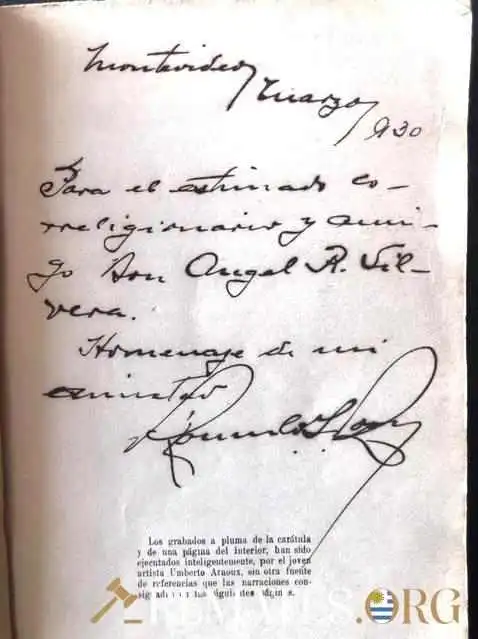 Montevideo,
Marzo,
930
Para el estimado co-
rreligionario y ami-
go Don Angel R. Sil-
vera.
Homenaje de mi
amistad
Rómulo
Los grabados a pluma de la carátula
y de una página del interior, han sido
ejecutados inteligentemente, por el joven
artista Umberto Arnoux, sin otra fuente
de referencias que las narraciones con-
signadas en las siguientes páginas.
REMATES.ORG